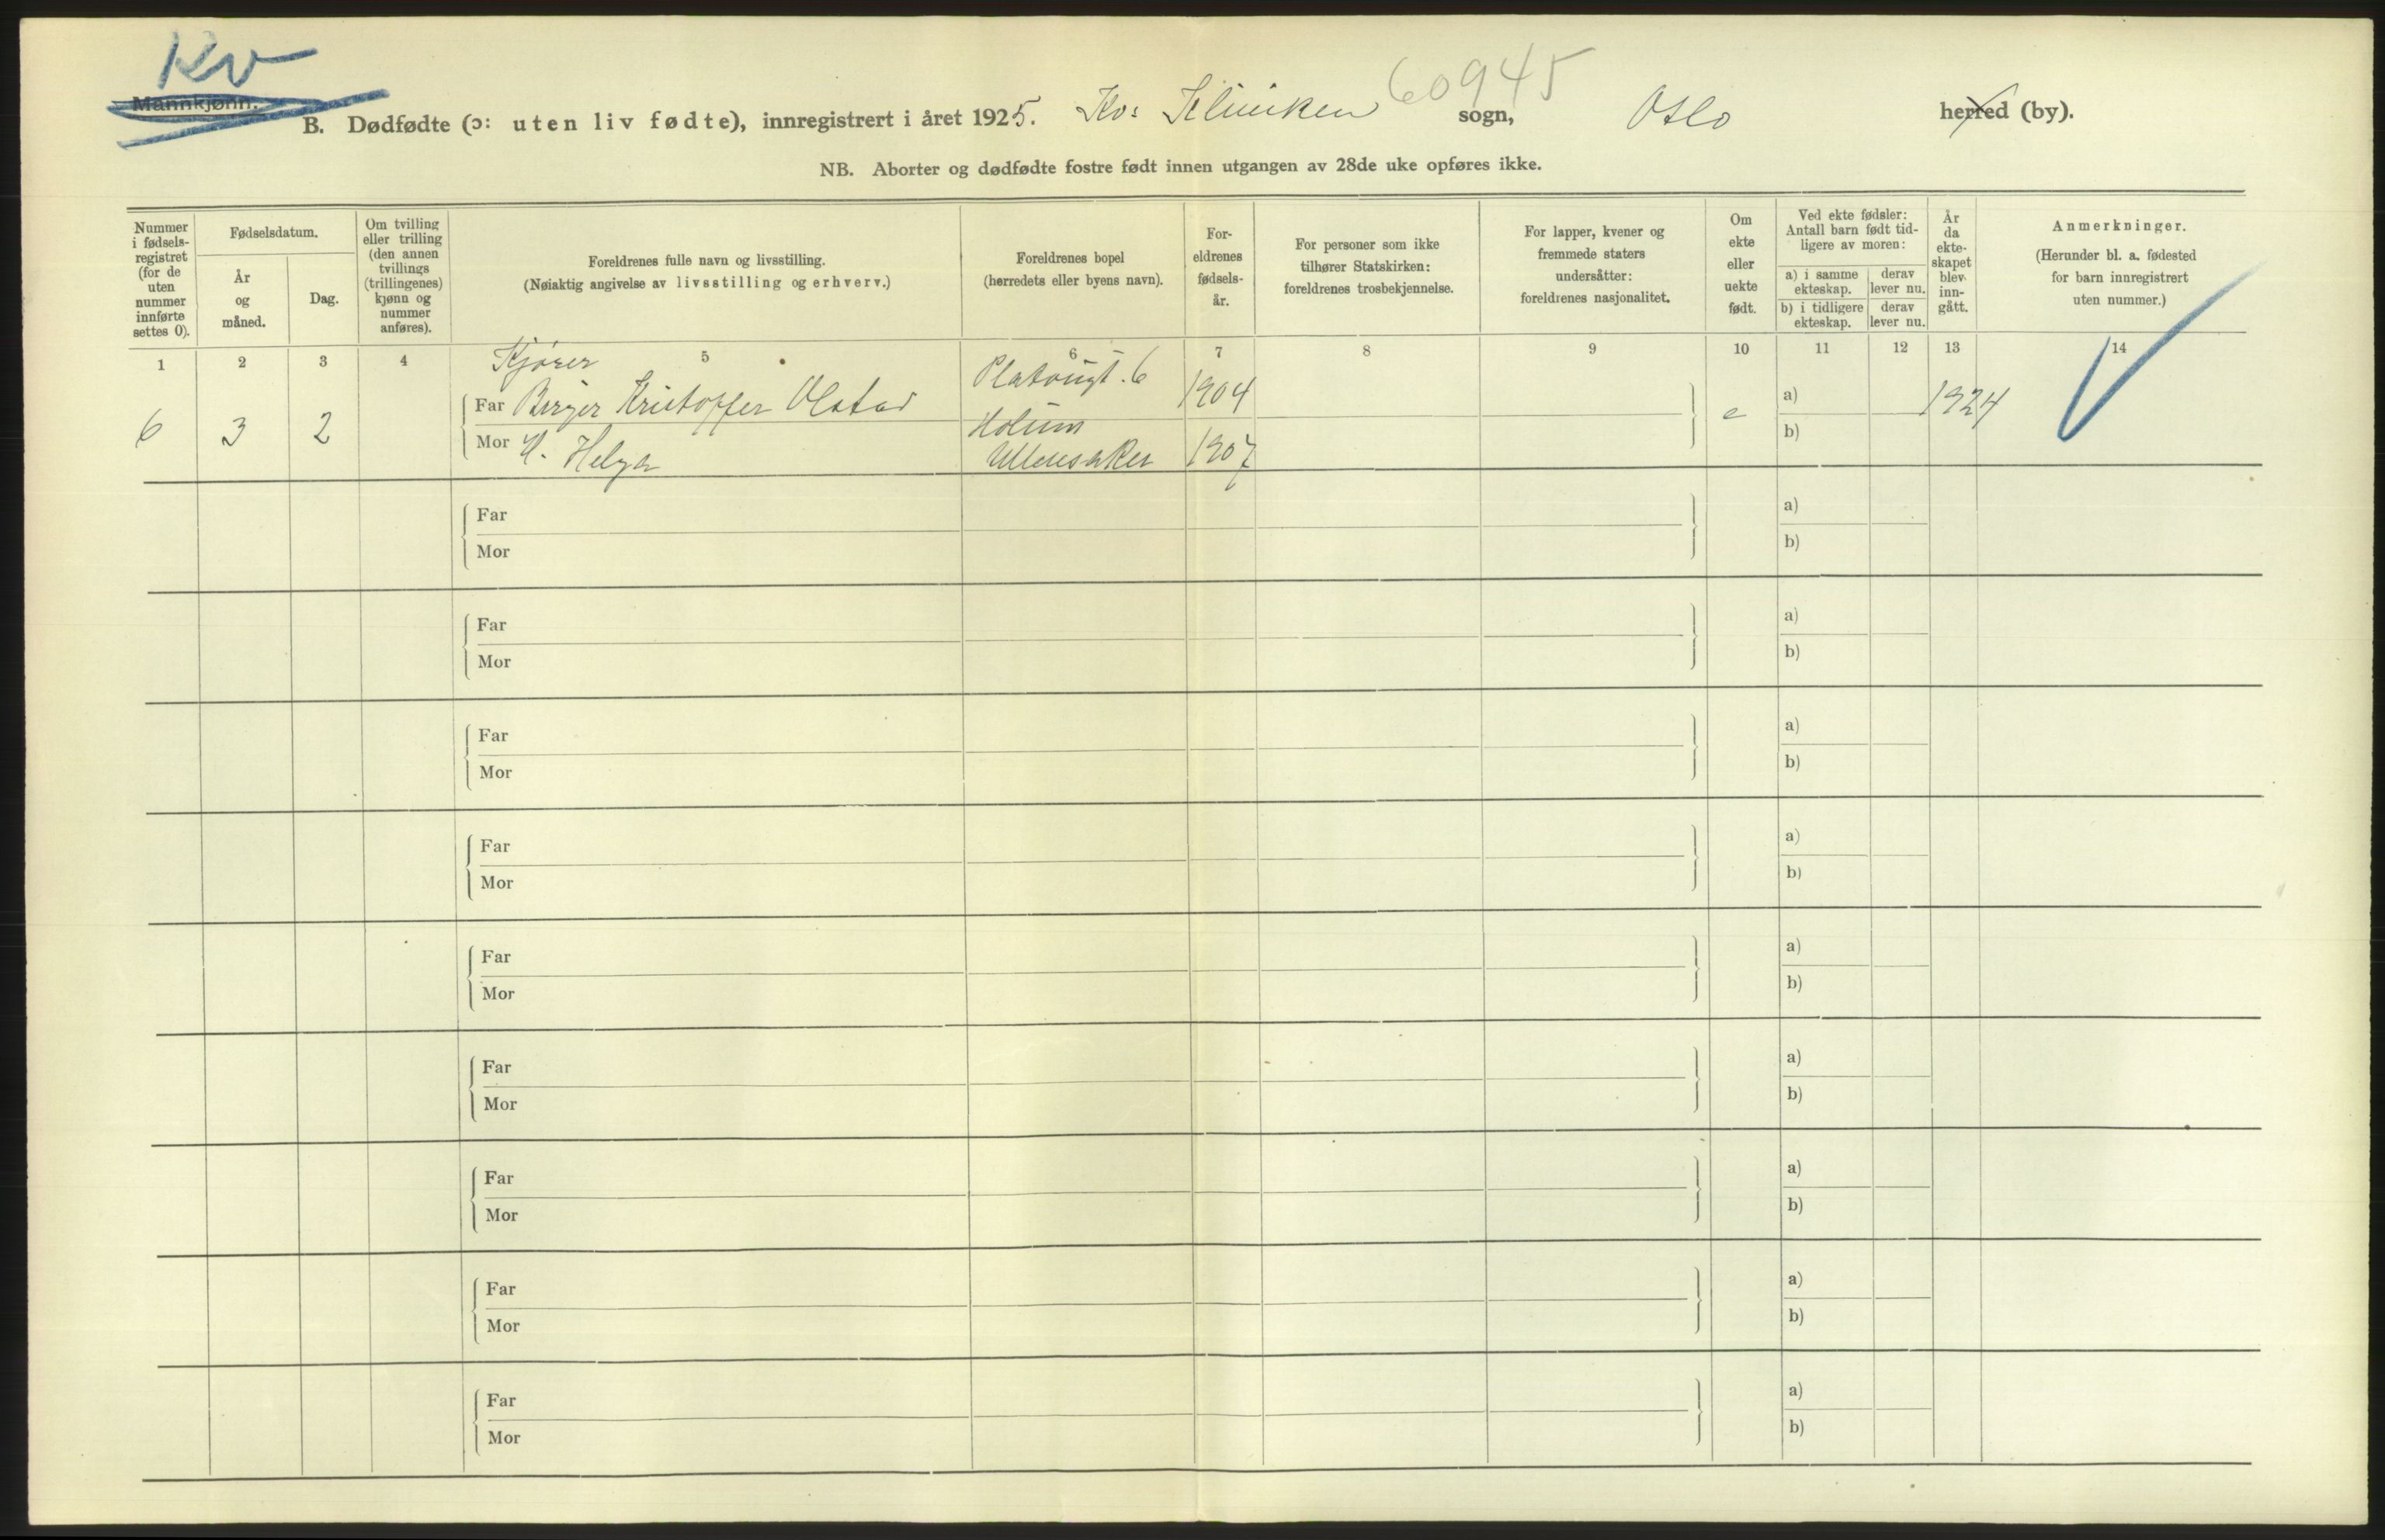 Kv
60945
Mannkjønn.
B. Dødfødte (ɔ: uten liv fødte), innregistrert i året 1925. Kv: Kliniken sogn, Oslo herred (by).
NB. Aborter og dødfødte fostre født innen utgangen av 28de uke opføres ikke.
Nummer
i fødsels-
registret
(for de
uten
nummer
innførte
settes 0).
Fødselsdatum.
År
og
måned.
Dag.
Om tvilling
eller trilling
(den annen
tvillings
(trillingenes)
kjønn og
nummer
anføres).
Foreldrenes fulle navn og livsstilling.
(Nøiaktig angivelse av livsstilling og erhverv.)
Foreldrenes bopel
(herredets eller byens navn).
For-
eldrenes
fødsels-
år.
For personer som ikke
tilhører Statskirken:
foreldrenes trosbekjennelse.
For lapper, kvener og
fremmede staters
undersåtter:
foreldrenes nasjonalitet.
Om
ekte
eller
uekte
født.
Ved ekte fødsler:
Antall barn født tid-
ligere av moren:
a) i samme
ekteskap.
derav
lever nu.
b) i tidligere
ekteskap.
derav
lever nu.
År
da
ekte-
skapet
blev
inn-
gått.
Anmerkninger.
(Herunder bl. a. fødested
for barn innregistrert
uten nummer.)
1 2 3 4 5 6 7 8 9 10 11 12 13 14
Kjører
6 3 2
Far Birger Kristoffer Olstad
6
1904
e
a)
1924
Mor H. Helga
Holum
Ullensaker
1907
b)
Far a)
Mor b)
Far a)
Mor b)
Far a)
Mor b)
Far a)
Mor b)
Far a)
Mor b)
Far a)
Mor b)
Far a)
Mor b)
Far a)
Mor b)
Far a)
Mor b)